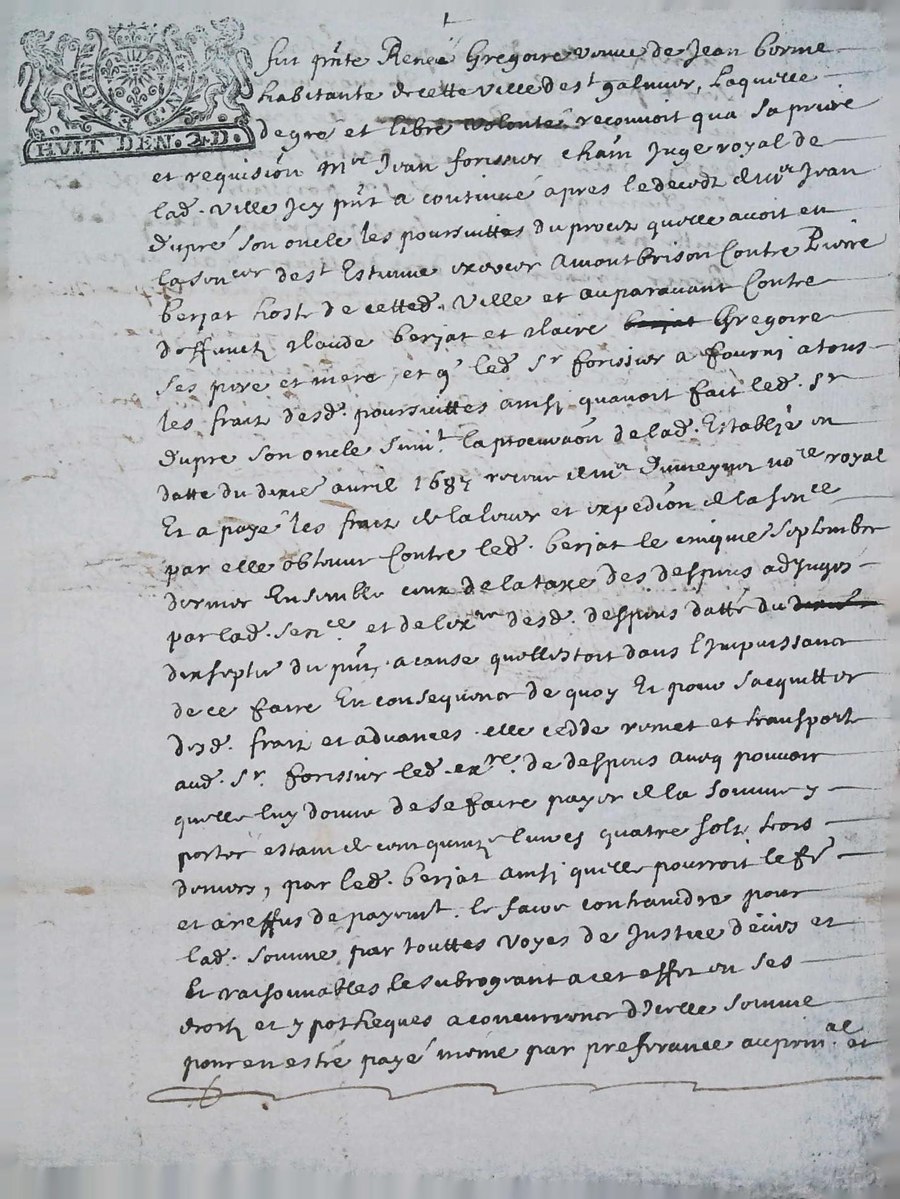 GEN. D
ET LION
HVIT DEN. 2 D.
fut p̃nte Reneé Gregoire veuue de Jean borme
habitante de cette ville de st galmier, Laquelle
de gré et libre volonté reconnoit qua sa priere
et requisiõn Mre Jean forissier cháin Juge royal de
lade. ville Jcy pñt a continué apres le deceds de Mre Jean
dupré son oncle les poursuittes du procez quelle auoit en
la sen de st Estienne a Montbrison Contre Pierre
berjat hoste de cetted. ville et auparauant Contre
deffunctz Claude berjat et Claire berjat Gregoire
ses pere et mere, et q led. Sr forissier a fourni a tous
les frais desd. poursuittes ainsy quauoit fait led. Sr
dupre son oncle suiut. la procuraõn de lad. Establie en
datte du dixie avril 1687 receue de Mre nore royal
Et a payé les frais de la leuee et expediõn de la sence
par elle obtenue Contre led. berjat le cinquie Septembre
dernier Ensemble ceux de la taxe des despens adjugés
par lad. sence et de lexre desd. despens datté du
dixseptie du pñt, a cause quelle estoit dans l'Impuissance
de ce faire En consequence de quoy Et pour sacquitter
desd. frais et aduances elle cedde remet et transporte
aud. Sr. forissier led. exre. de despens aueq pouuoir
quelle luy donne de se faire payer de la somme y
portée estant de cent quinze liures quatre solz trois
deniers, par led. berjat ainsy quelle pourroit le fe
et a reffus de payemt. le faire contraindre pour
lad. somme par touttes voyes de Justice deües et
Et raisonnables le subrogeant a cet effet en ses
droitz et ypotheques a concurrence d'Icelle somme
pour en estre payé mesme par preferance au prinal et